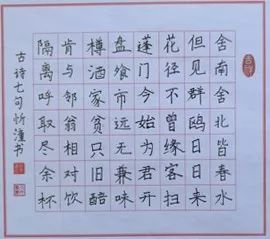 舍南舍北皆春水
但见群鸥日日来
花径不曾缘客扫
蓬门今始为君开
盘飧市远无兼味
樽酒家贫只旧醅
肯与邻翁相对饮
隔离呼取尽余杯
古诗七句忻潼书